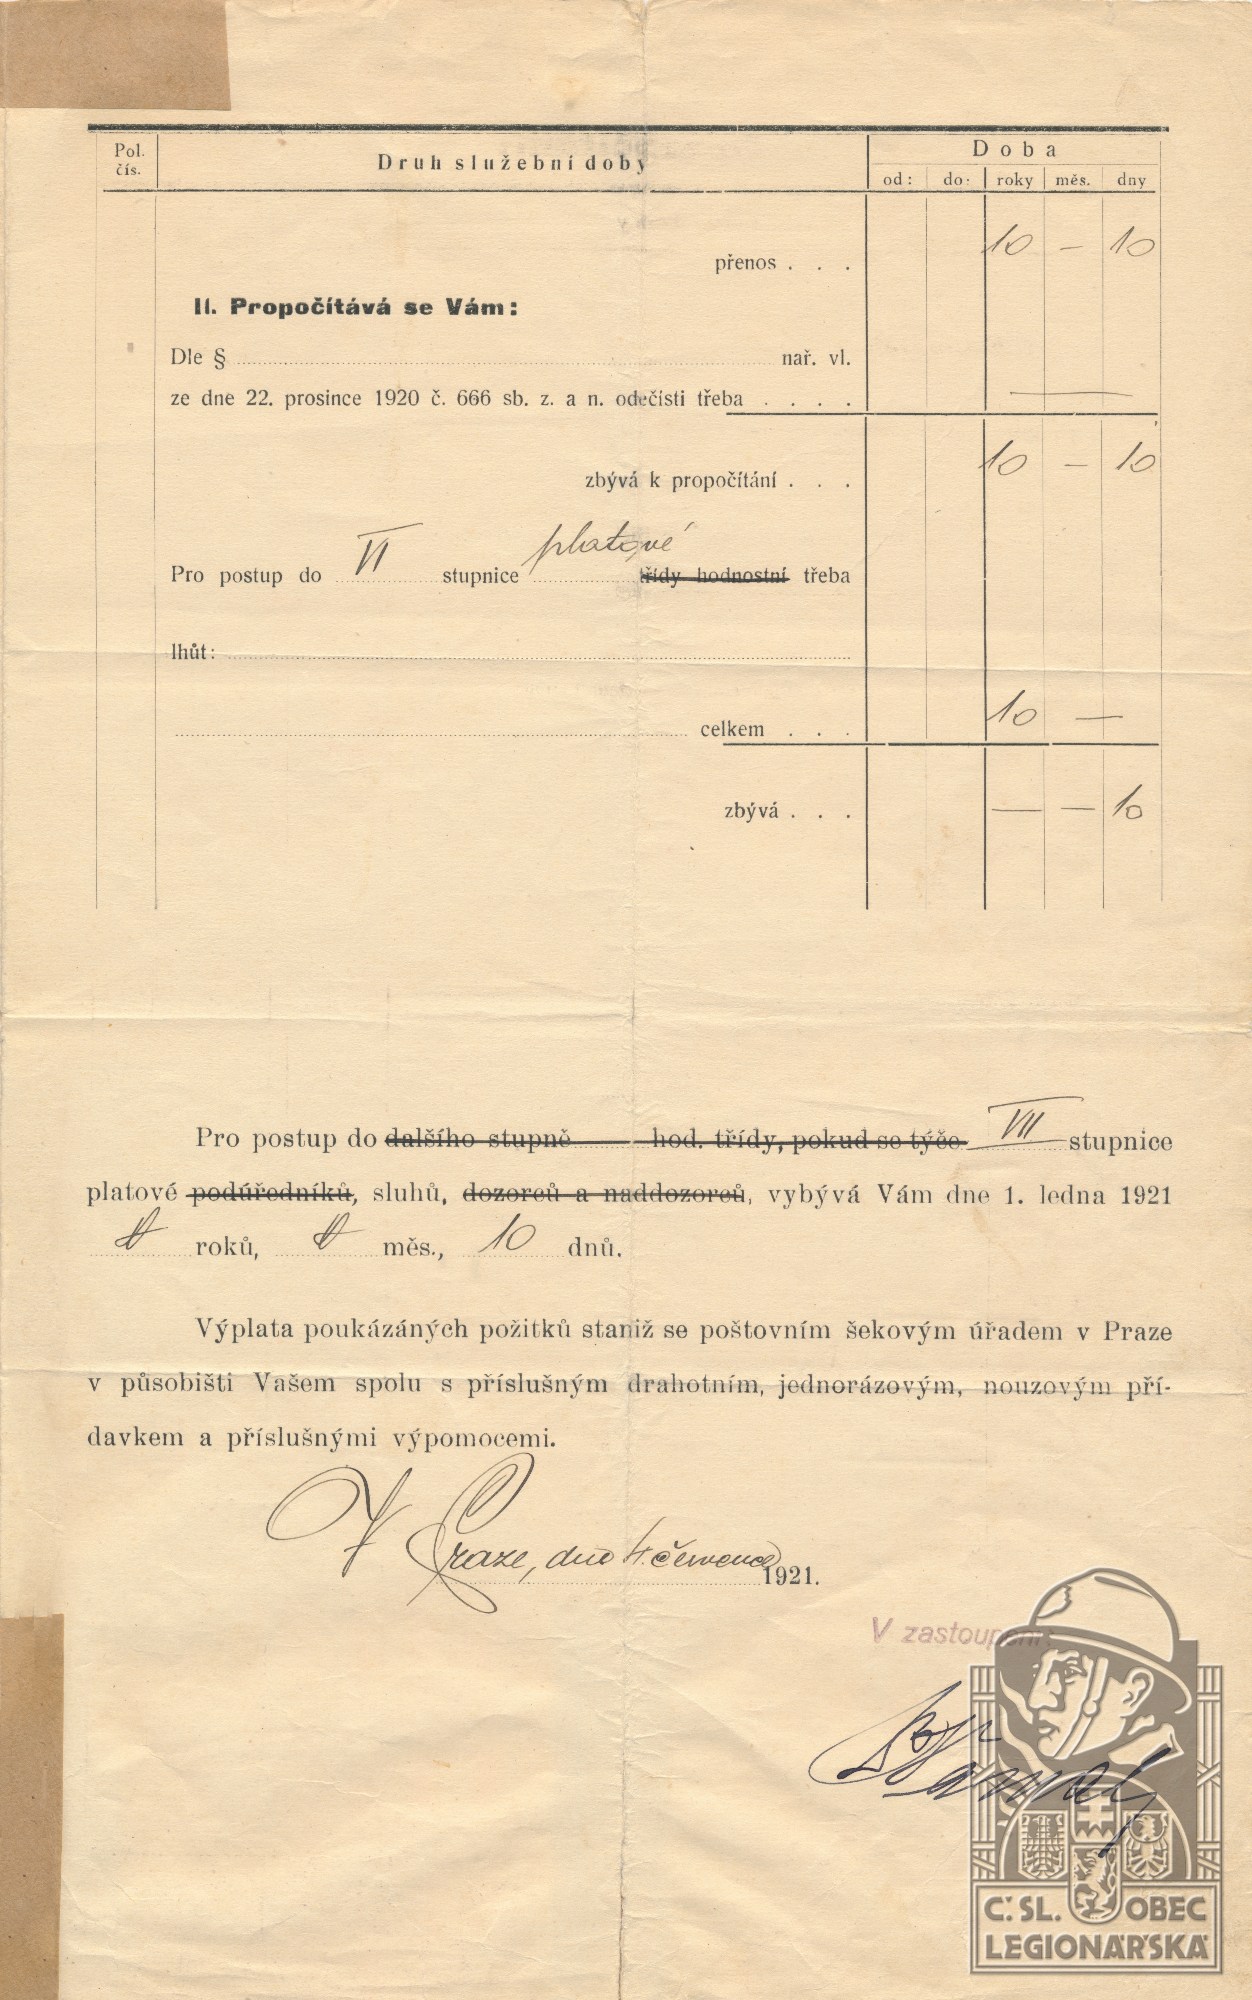 Pol. čís. Druh služební doby Doba
od: do: roky měs. dny
přenos . . . 10 — 10
II. Propočítává se Vám:
Dle § nař. vl.
ze dne 22. prosince 1920 č. 666 sb. z. a n. odečísti třeba . . . . —
zbývá k propočítání . . . 10 — 10
Pro postup do VI stupnice platové třídy hodnostní třeba
lhůt:
celkem . . . 10 —
zbývá . . . — — 10
Pro postup do dalšího stupně hod. třídy, pokud se týče VII stupnice
platové podúředníků, sluhů, dozorců a naddozorců, vybývá Vám dne 1. ledna 1921
roků, měs., 10 dnů.
Výplata poukázáných požitků staniž se poštovním šekovým úřadem v Praze
v působišti Vašem spolu s příslušným drahotním, jednorázovým, nouzovým pří-
davkem a příslušnými výpomocemi.
V Praze, dne 4. července 1921.
V zastoupení:
Č. SL. OBEC
LEGIONÁŘSKÁ